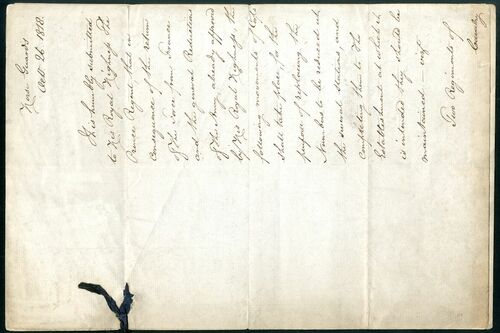 Horse Guards
Octr 26 1818.
It is humbly submitted
to His Royal Highness The
Prince Regent, that in
consequence of the return
of the Force from France
and the general Reductions
of the Army already approved
by His Royal Highness, the
following movements of Corps
shall take place, for the
purpose of replacing the
Numbers to be reduced at
the several Stations, and
completing them to the
Establishment at which it
is intended they should be
maintained — viz
Two Regiments of
Cavalry